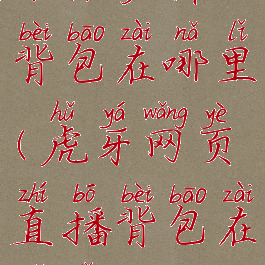 bèi bāo zài nǎ lǐ
背包在哪里
hǔ yá wǎng yè
(虎牙网页
zhí bō bèi bāo zài
直播背包在